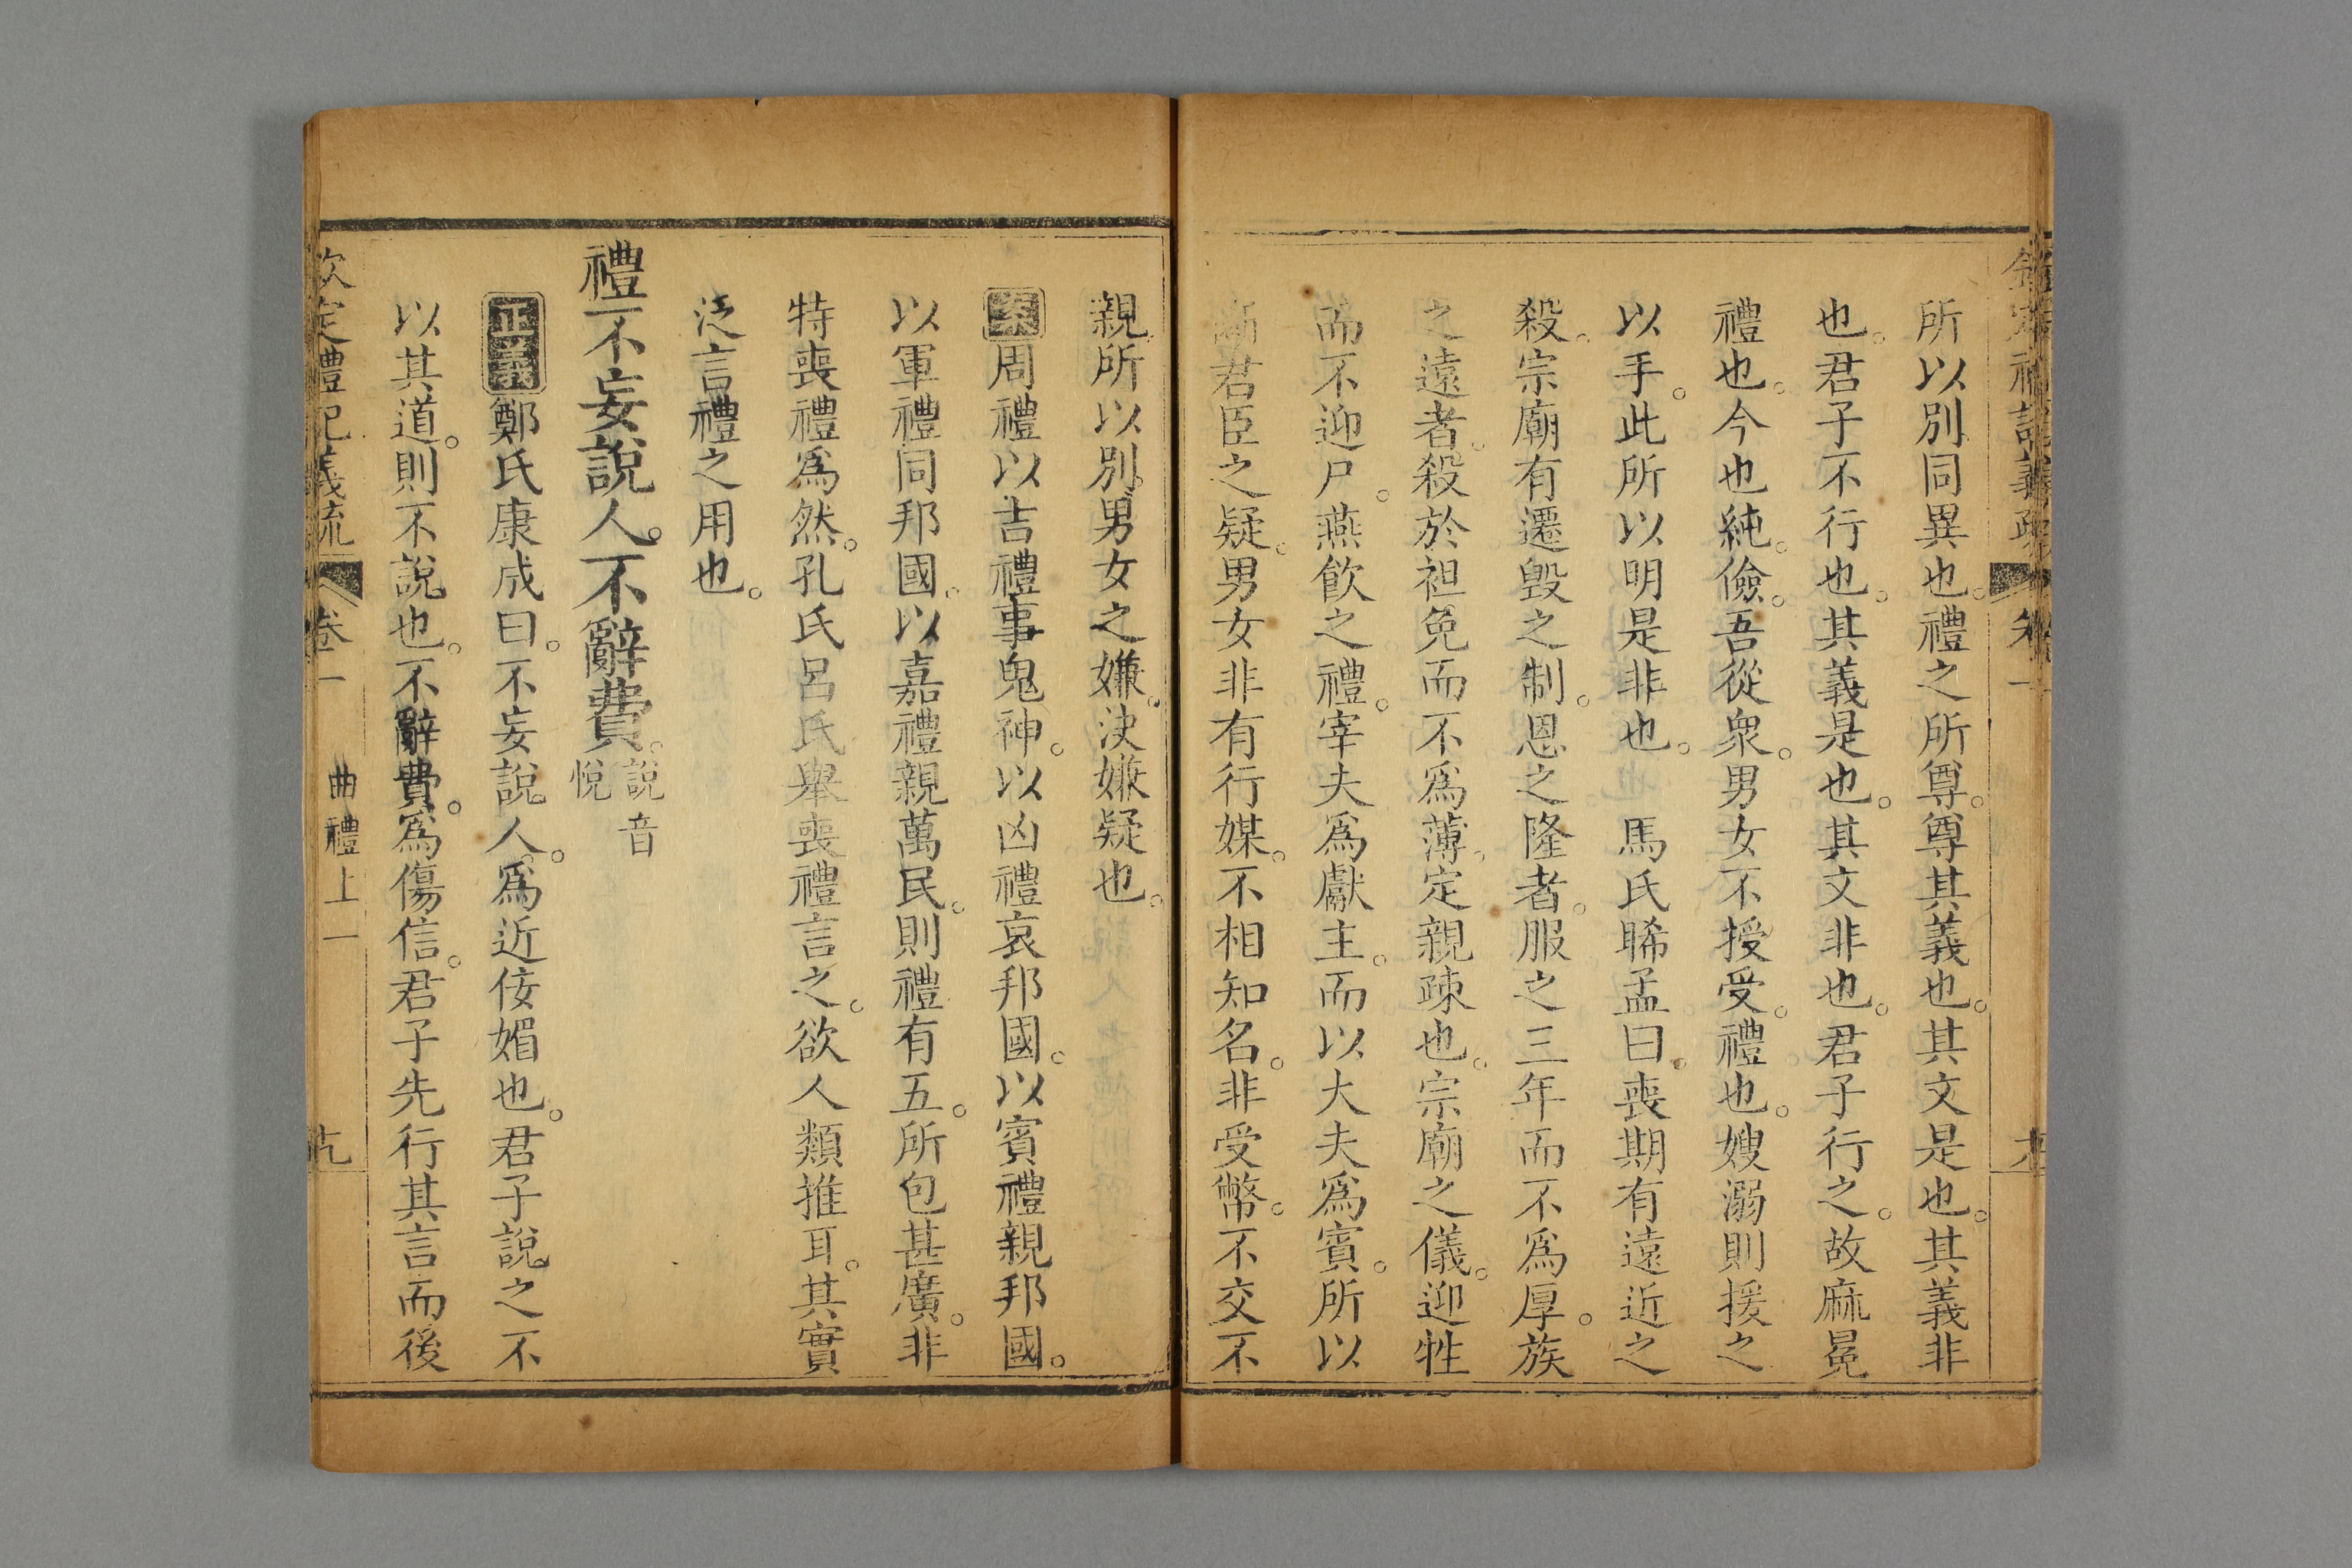 所以別同異也。禮之所尊。尊其義也。其文是也。其義非
也。君子不行也。其義是也。其文非也。君子行之。故麻冕
禮也。今也純。儉。吾從衆。男女不授受。禮也。嫂溺則援之
以手。此所以明是非也。 馬氏睎孟曰。喪期有遠近之
殺。宗廟有遷毀之制。恩之隆者。服之三年而不爲厚。族
之遠者。殺於袒免而不爲薄。定親疎也。宗廟之儀。迎牲
而不迎尸。燕飲之禮。宰夫爲獻主。而以大夫爲賓。所以
君臣之疑。男女非有行媒。不相知名。非受幣。不交不
親。所以別男女之嫌。決嫌疑也。
案周禮以吉禮事鬼神。以凶禮哀邦國。以賓禮親邦國。
以軍禮同邦國。以嘉禮親萬民。則禮有五。所包甚廣。非
特喪禮爲然。孔氏呂氏舉喪禮言之。欲人類推耳。其實
泛言禮之用也。
禮不妄說人。不辭費。說音悅
正義鄭氏康成曰。不妄說人。爲近佞媚也。君子說之不
以其道。則不說也。不辭費。爲傷信。君子先行其言而後
欽定禮記義疏 卷一 曲禮上一